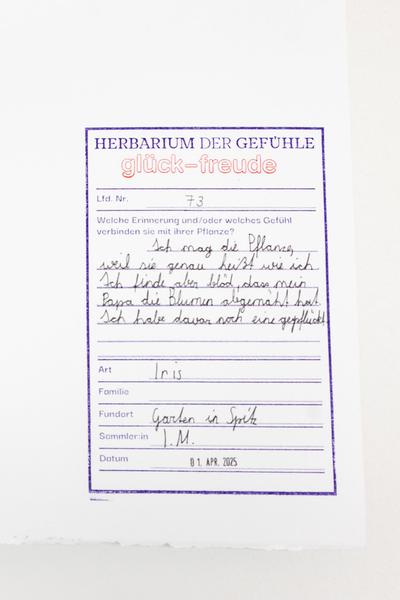 HERBARIUM DER GEFÜHLE
glück-freude
Lfd. Nr. 73
Welche Erinnerung und/oder welches Gefühl
verbinden sie mit ihrer Pflanze?
Ich mag die Pflanze,
weil sie genau heißt wie ich
Ich finde aber blöd, dass mein
Papa die Blumen abgemäht hat.
Ich habe davor noch eine gepflückt
Art Iris
Familie
Fundort Garten in Spitz
Sammler:in I.M.
Datum 01. APR. 2025